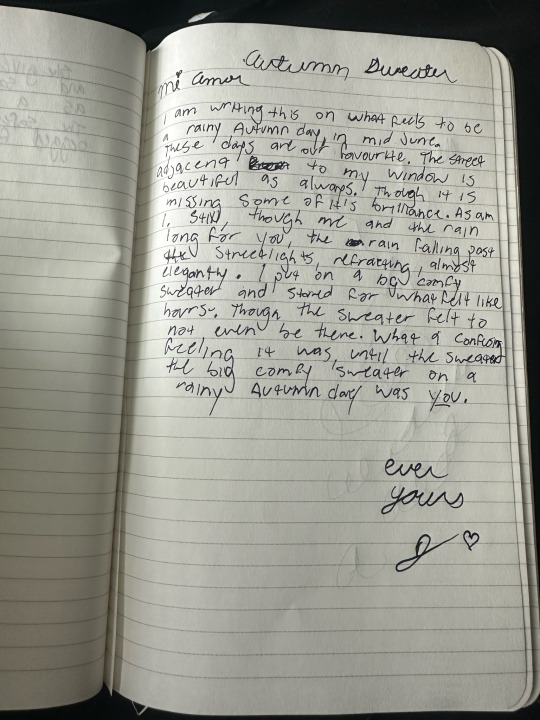 Autumn Sweater
mi amor
I am writing this on what feels to be
a rainy Autumn day in mid June.
These days are our favourite. The street
adjacent to my window is
beautiful as always. Though it is
missing some of it's brilliance. As am
I. Still, though me and the rain
long for you, the rain falling past
the streetlights, refracting, almost
elegantly. I put on a big comfy
sweater and stared for what felt like
hours. Though the sweater felt to
not even be there. What a
feeling it was, until the sweater
the big comfy sweater on a
rainy Autumn day was you.
ever
yours